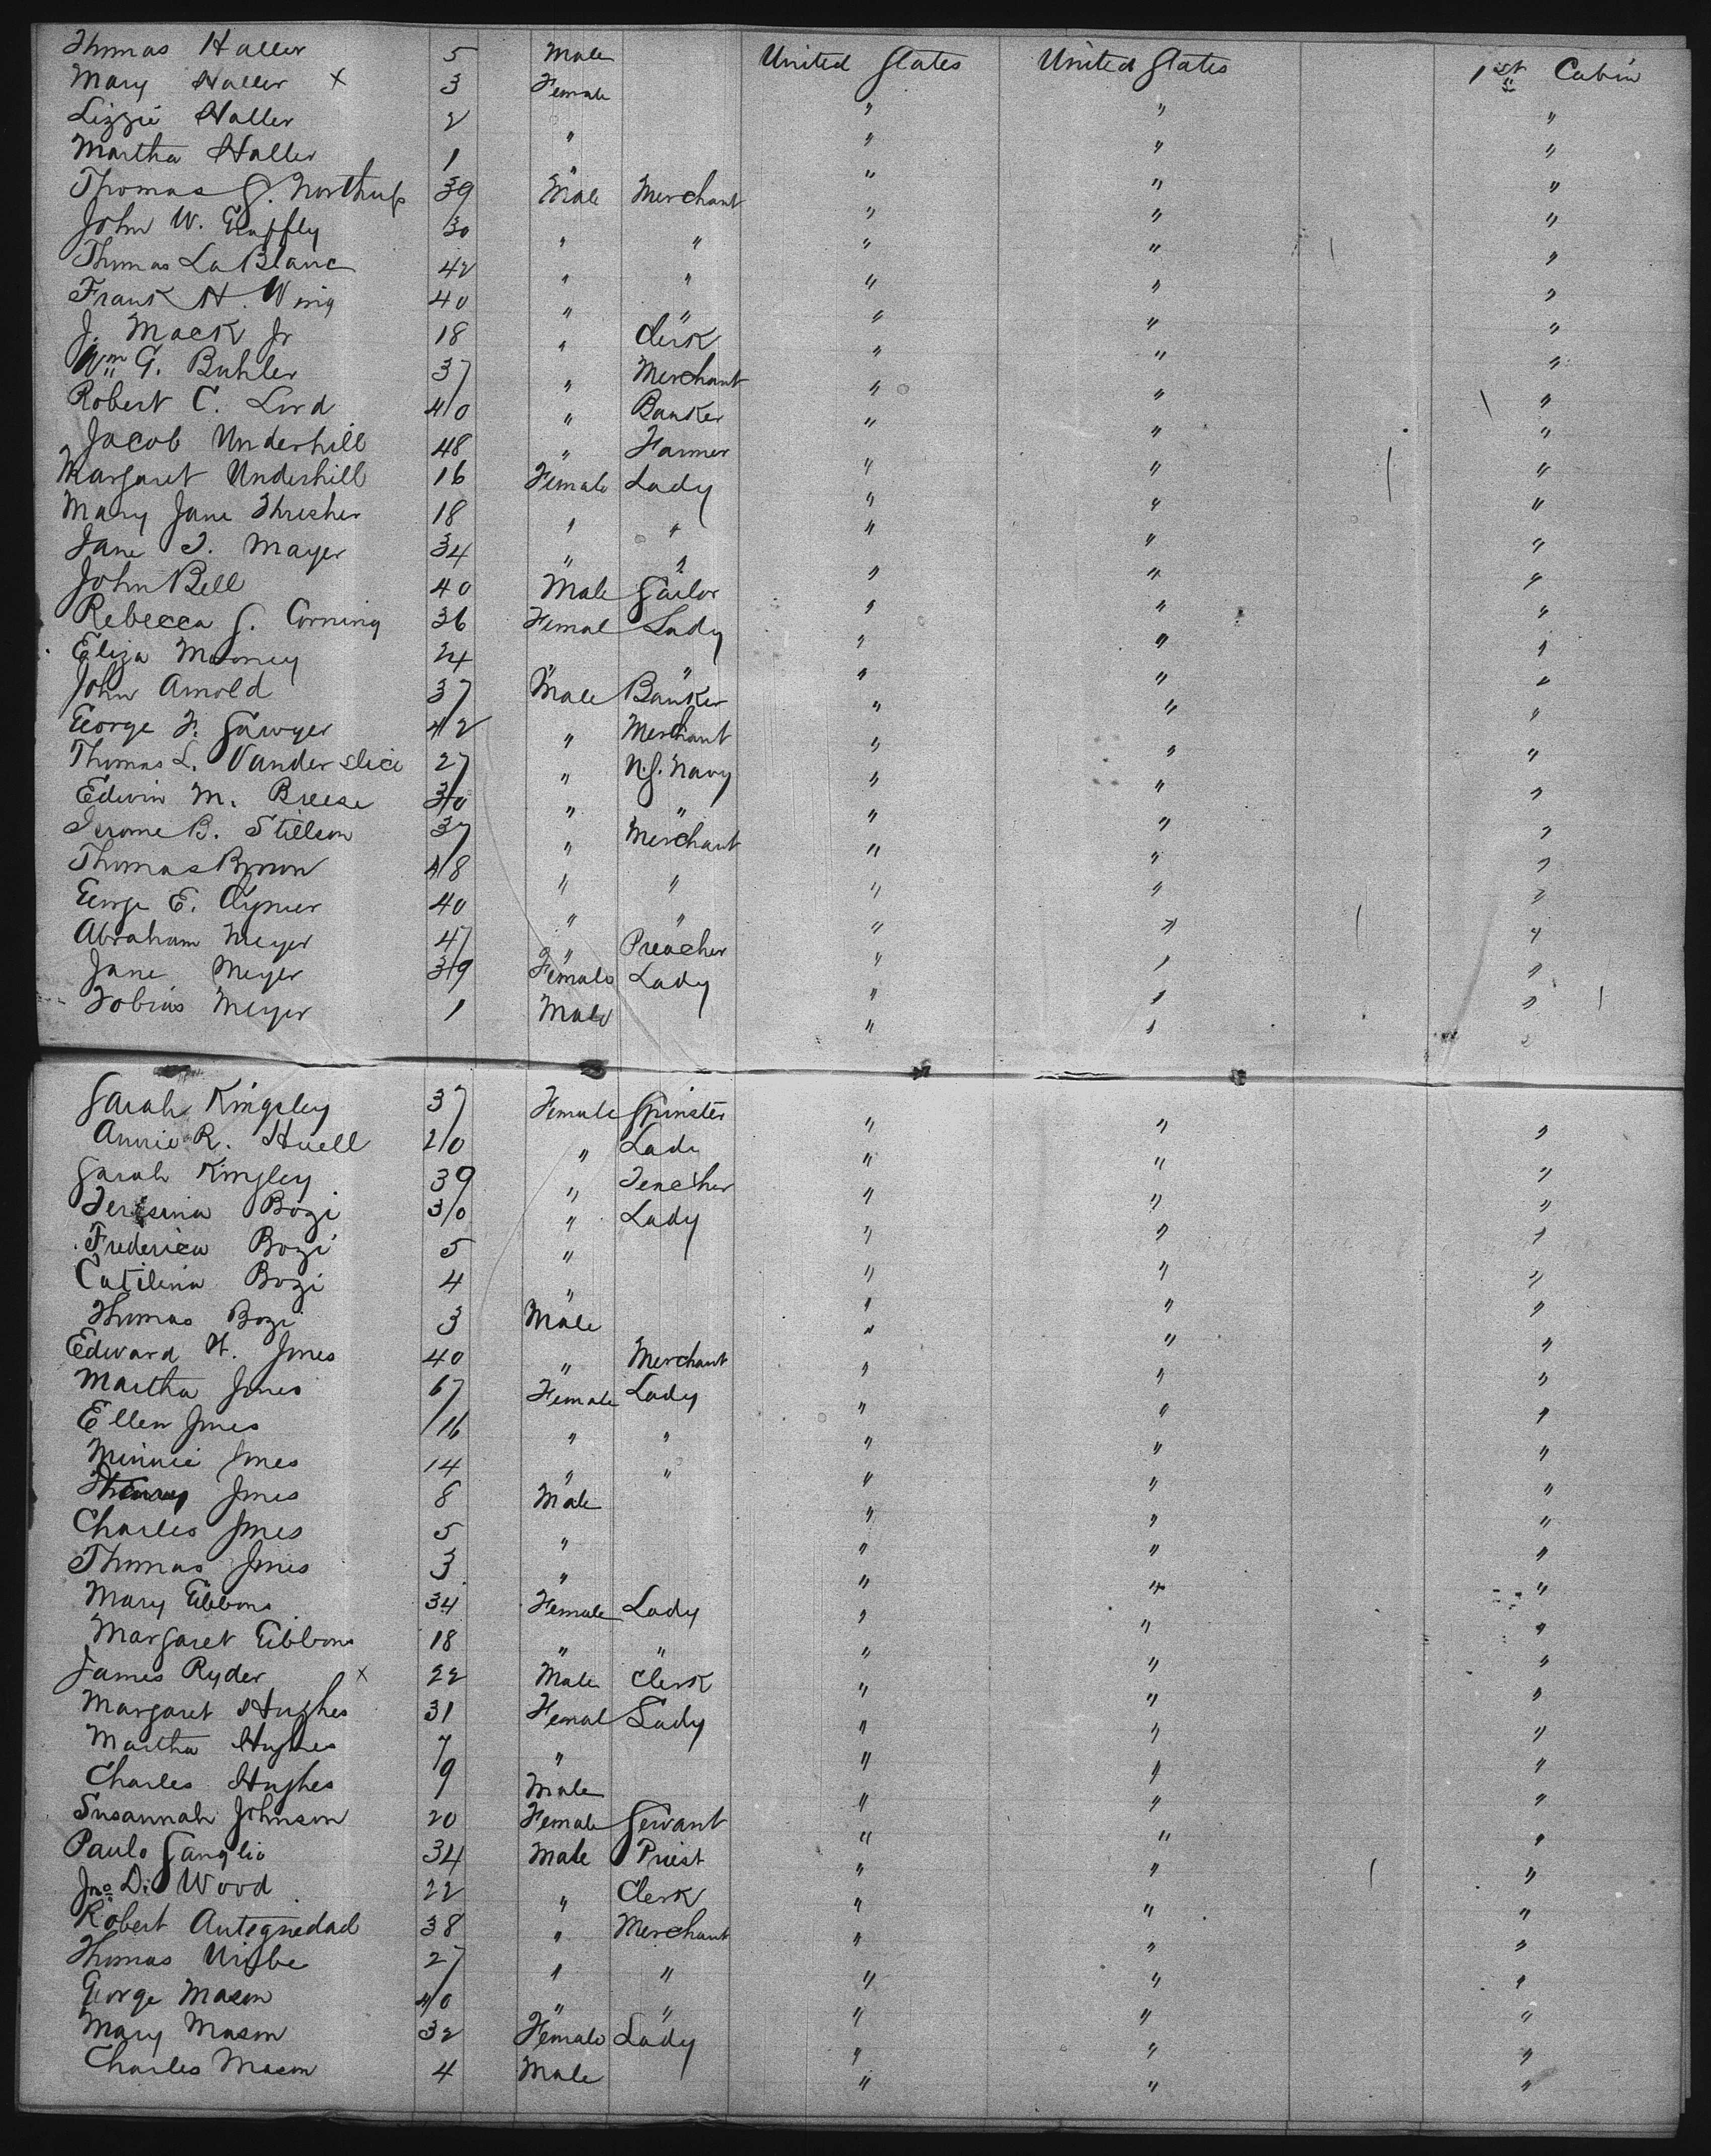 Thomas Haller 5 Male United States United States 1st Cabin
Mary Haller x 3 Female " " "
Lizzie Haller 2 " " " "
Martha Haller 1 " " " "
Thomas S. Northup 39 Male Merchant " " "
John W. 30 " " " " "
Thomas La Blanc 42 " " " " "
Frank H. Wing 40 " " " " "
J. Mack Jr 18 " Clerk " " "
Wm G. Buhler 37 " Merchant " " "
Robert C. Lord 40 " Banker " " "
Jacob Underhill 48 " Farmer " " "
Margaret Underhill 16 Female Lady " " "
Mary Jane Thresher 18 " " " " "
Jane I. Mayer 34 " " " " "
John Bell 40 Male Sailor " " "
Rebecca S. Corning 36 Femal Lady " " "
Eliza Mooney 24 " " " " "
John Arnold 37 Male Banker " " "
George F. Sawyer 42 " Merchant " " "
Thomas L. Vanderslice 27 " U.S. Navy " " "
Edwin M. Breese 30 " " " " "
Jerome B. Stillson 37 " Merchant " " "
Thomas Brown 48 " " " " "
George E. Clymer 40 " " " " "
Abraham Meyer 47 " Preacher " " "
Jane Meyer 39 Female Lady " " "
Tobias Meyer 1 Male " " "
Sarah Kingsley 37 Female Spinster " " "
Annie R. Huell 20 " Lady " " "
Sarah Kingley 39 " Teacher " " "
Teresina Bozi 30 " Lady " " "
Frederica Bozi 5 " " " "
Catilina Bozi 4 " " " "
Thomas Bozi 3 Male " " "
Edward H. Jones 40 " Merchant " " "
Martha Jones 67 Female Lady " " "
Ellen Jones 16 " " " " "
Minnie Jones 14 " " " " "
Henry Jones 8 Male " " "
Charles Jones 5 " " " "
Thomas Jones 3 " " " "
Mary Gibbons 34 Female Lady " " "
Margaret Gibbons 18 " " " " "
James Ryder x 22 Male Clerk " " "
Margaret Hughes 31 Femal Lady " " "
Martha Hughes 7 " " " "
Charles Hughes 9 Male " " "
Susannah Johnson 20 Female Servant " " "
Paulo Sanglio 34 Male Priest " " "
Jno D. Wood 22 " Clerk " " "
Robert 38 " Merchant " " "
Thomas Uribe 27 " " " " "
George Mason 40 " " " " "
Mary Mason 32 Female Lady " " "
Charles Mason 4 Male " " "